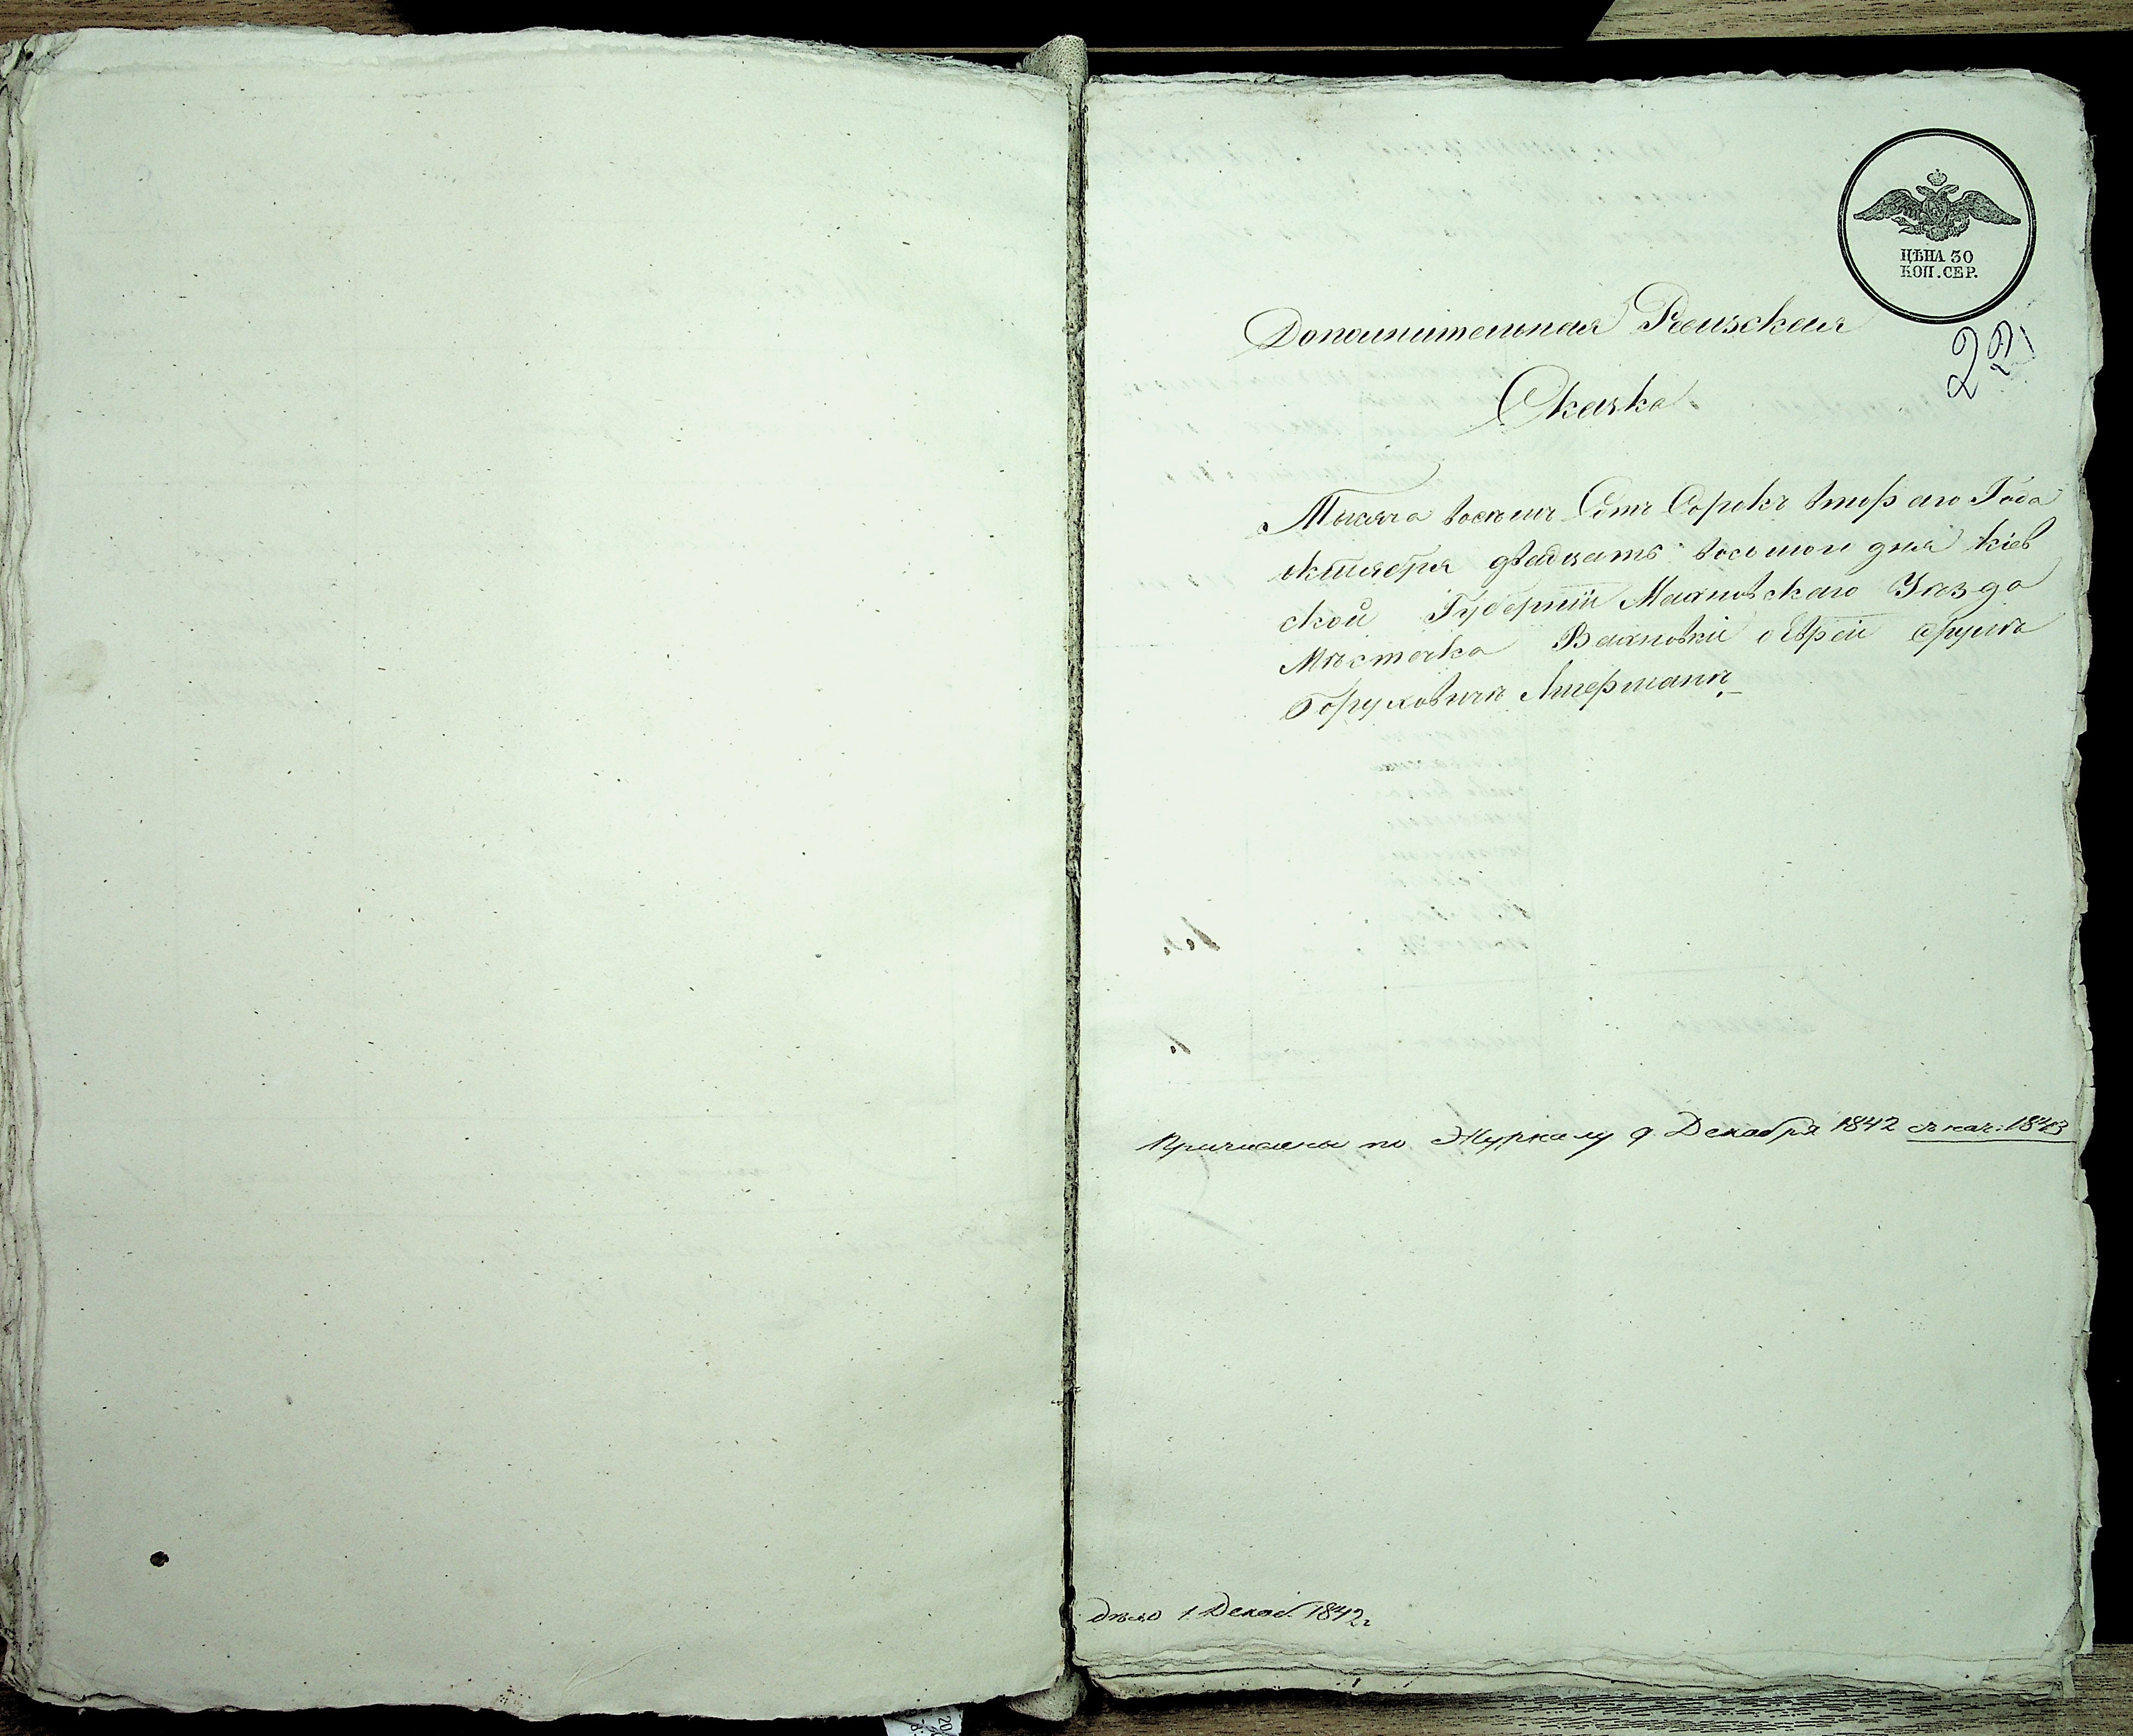 ЦѢНА 30
КОП. СЕР.
22
Дополнительная Ревизская
Сказка
Тысяча восемь Сотъ Сорокъ втораго Года
октября двадцать восьмого дня Кіев
ской Губерніи Махновскаго Уезда
Мѣстечка Вахновки о Еврей Сруль
Боруховичъ Литерманъ
Причислены по Журналу 9 Декабря 1842 съ нач: 1843
дѣло 1 Декаб. 1842 г